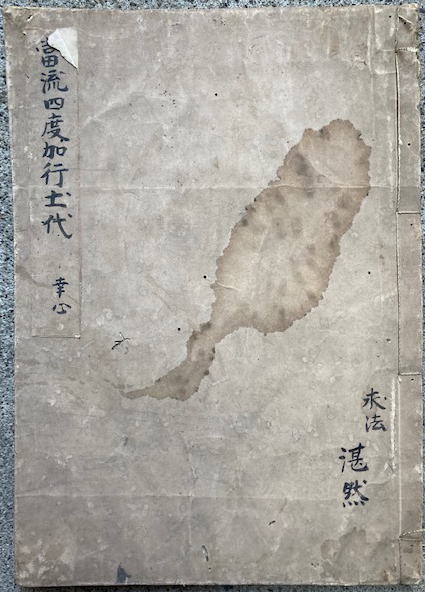 當流四度加行土代
幸心
求法
湛然